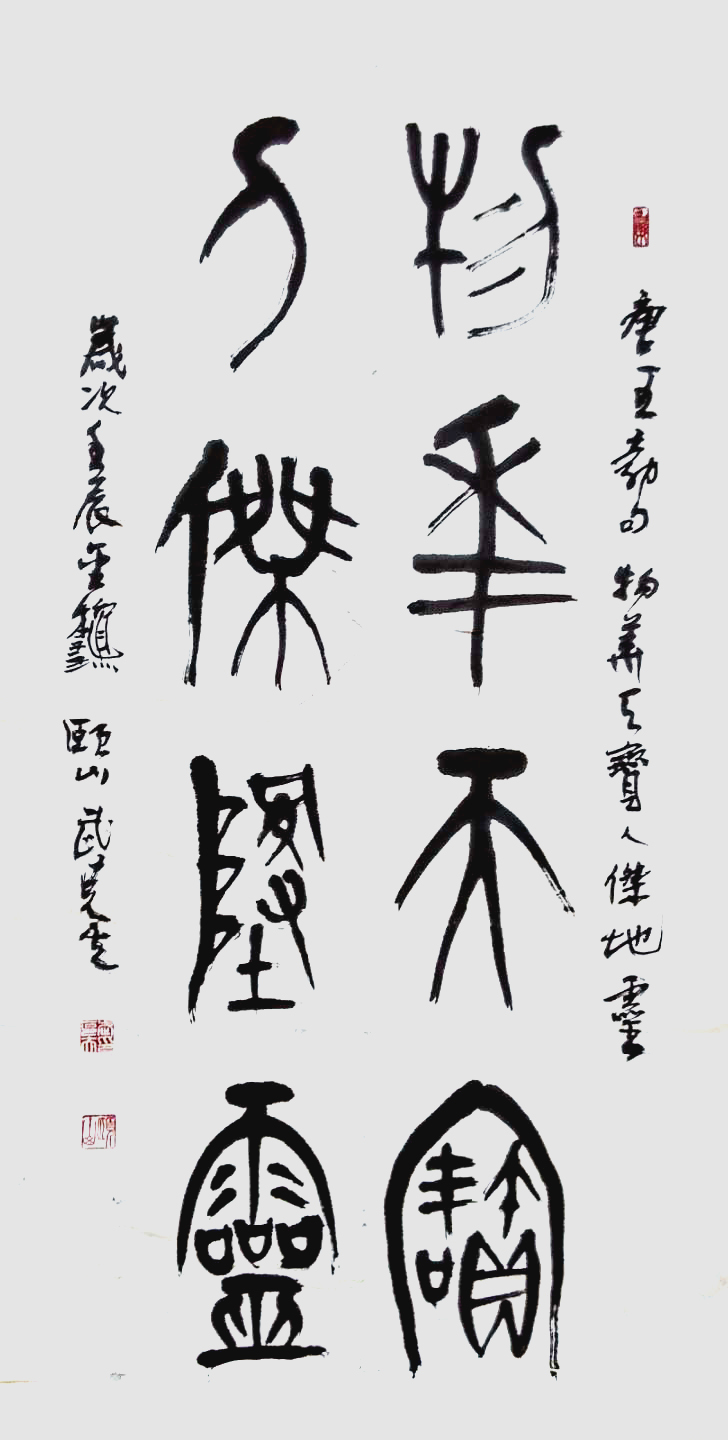 唐王勃句 物華天寶人傑地靈
物華天寶
人傑地靈
歲次壬辰金龝 頤山 武